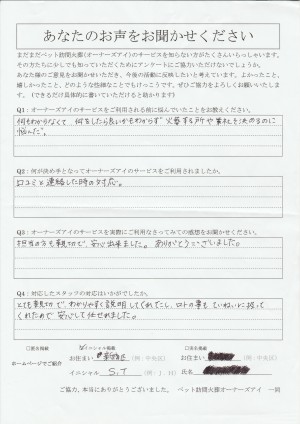 あなたのお声をお聞かせください
まだまだペット訪問火葬(オーナーズアイ)のサービスを知らない方がたくさんいらっしゃいます。
その方たちに少しでも知っていただくためにアンケートにご協力いただけないでしょうか。
あなた様のご意見をお聞かせいただき、今後の活動に反映したいと考えています。よかったこと、
嬉しかったこと、どのような些細なことでもけっこうです。ぜひ協力をよろしくお願いいたしま
す。(できるだけ具体的に書いていただけると助かります)
Q1:オーナーズアイのサービスをご利用される前に悩んでいたことをお教えください。
何もわからなくて、何をしたら良いかもわからず 火葬する所や業社を決めるのに
悩んだ。
Q2:何が決め手となってオーナーズアイのサービスをご利用されましたか。
口コミと連絡した時の対応。
Q3:オーナーズアイのサービスを実際にご利用なさってみての感想をお聞かせください。
担当の方も親切で、安心出来ました。ありがとうございました。
Q4:対応したスタッフの対応はいかがでしたか。
とても親切で、わかりやすく説明してくれたし、ロトの事もていねいに扱って
くれたので安心して任せれました。
□匿名掲載 イニシャル掲載 □実名掲載
ホームページでご紹介
お住まい (例:中央区) お住まい (例:中央区)
イニシャル S.T (例:J.H) 氏名
ご協力、本当にありがとうございました。 ペット訪問火葬オーナーズアイ 一同